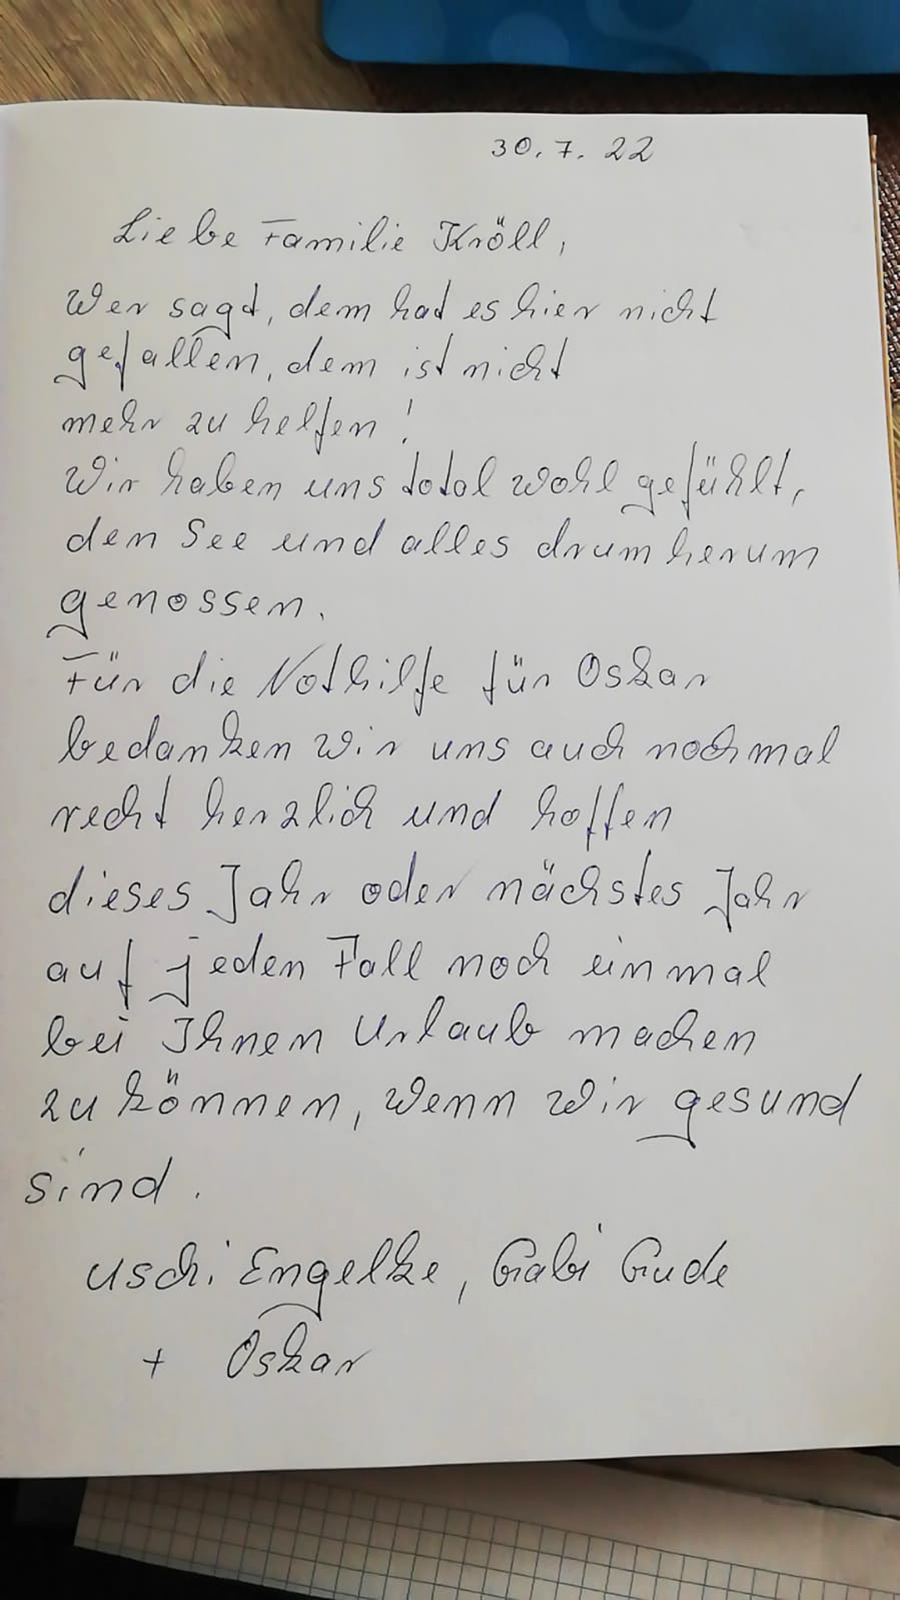 30.7.22
Liebe Familie Kröll,
Wer sagt, dem hat es hier nicht
gefallen, dem ist nicht
mehr zu helfen!
Wir haben uns total wohl gefühlt,
den See und alles drumherum
genossen.
Für die Nothilfe für Oskar
bedanken wir uns auch nochmal
recht herzlich und hoffen
dieses Jahr oder nächstes Jahr
auf jeden Fall noch einmal
bei Ihnen Urlaub machen
zu können, wenn wir gesund
sind.
Uschi Engelke, Gabi Gude
+ Oskar